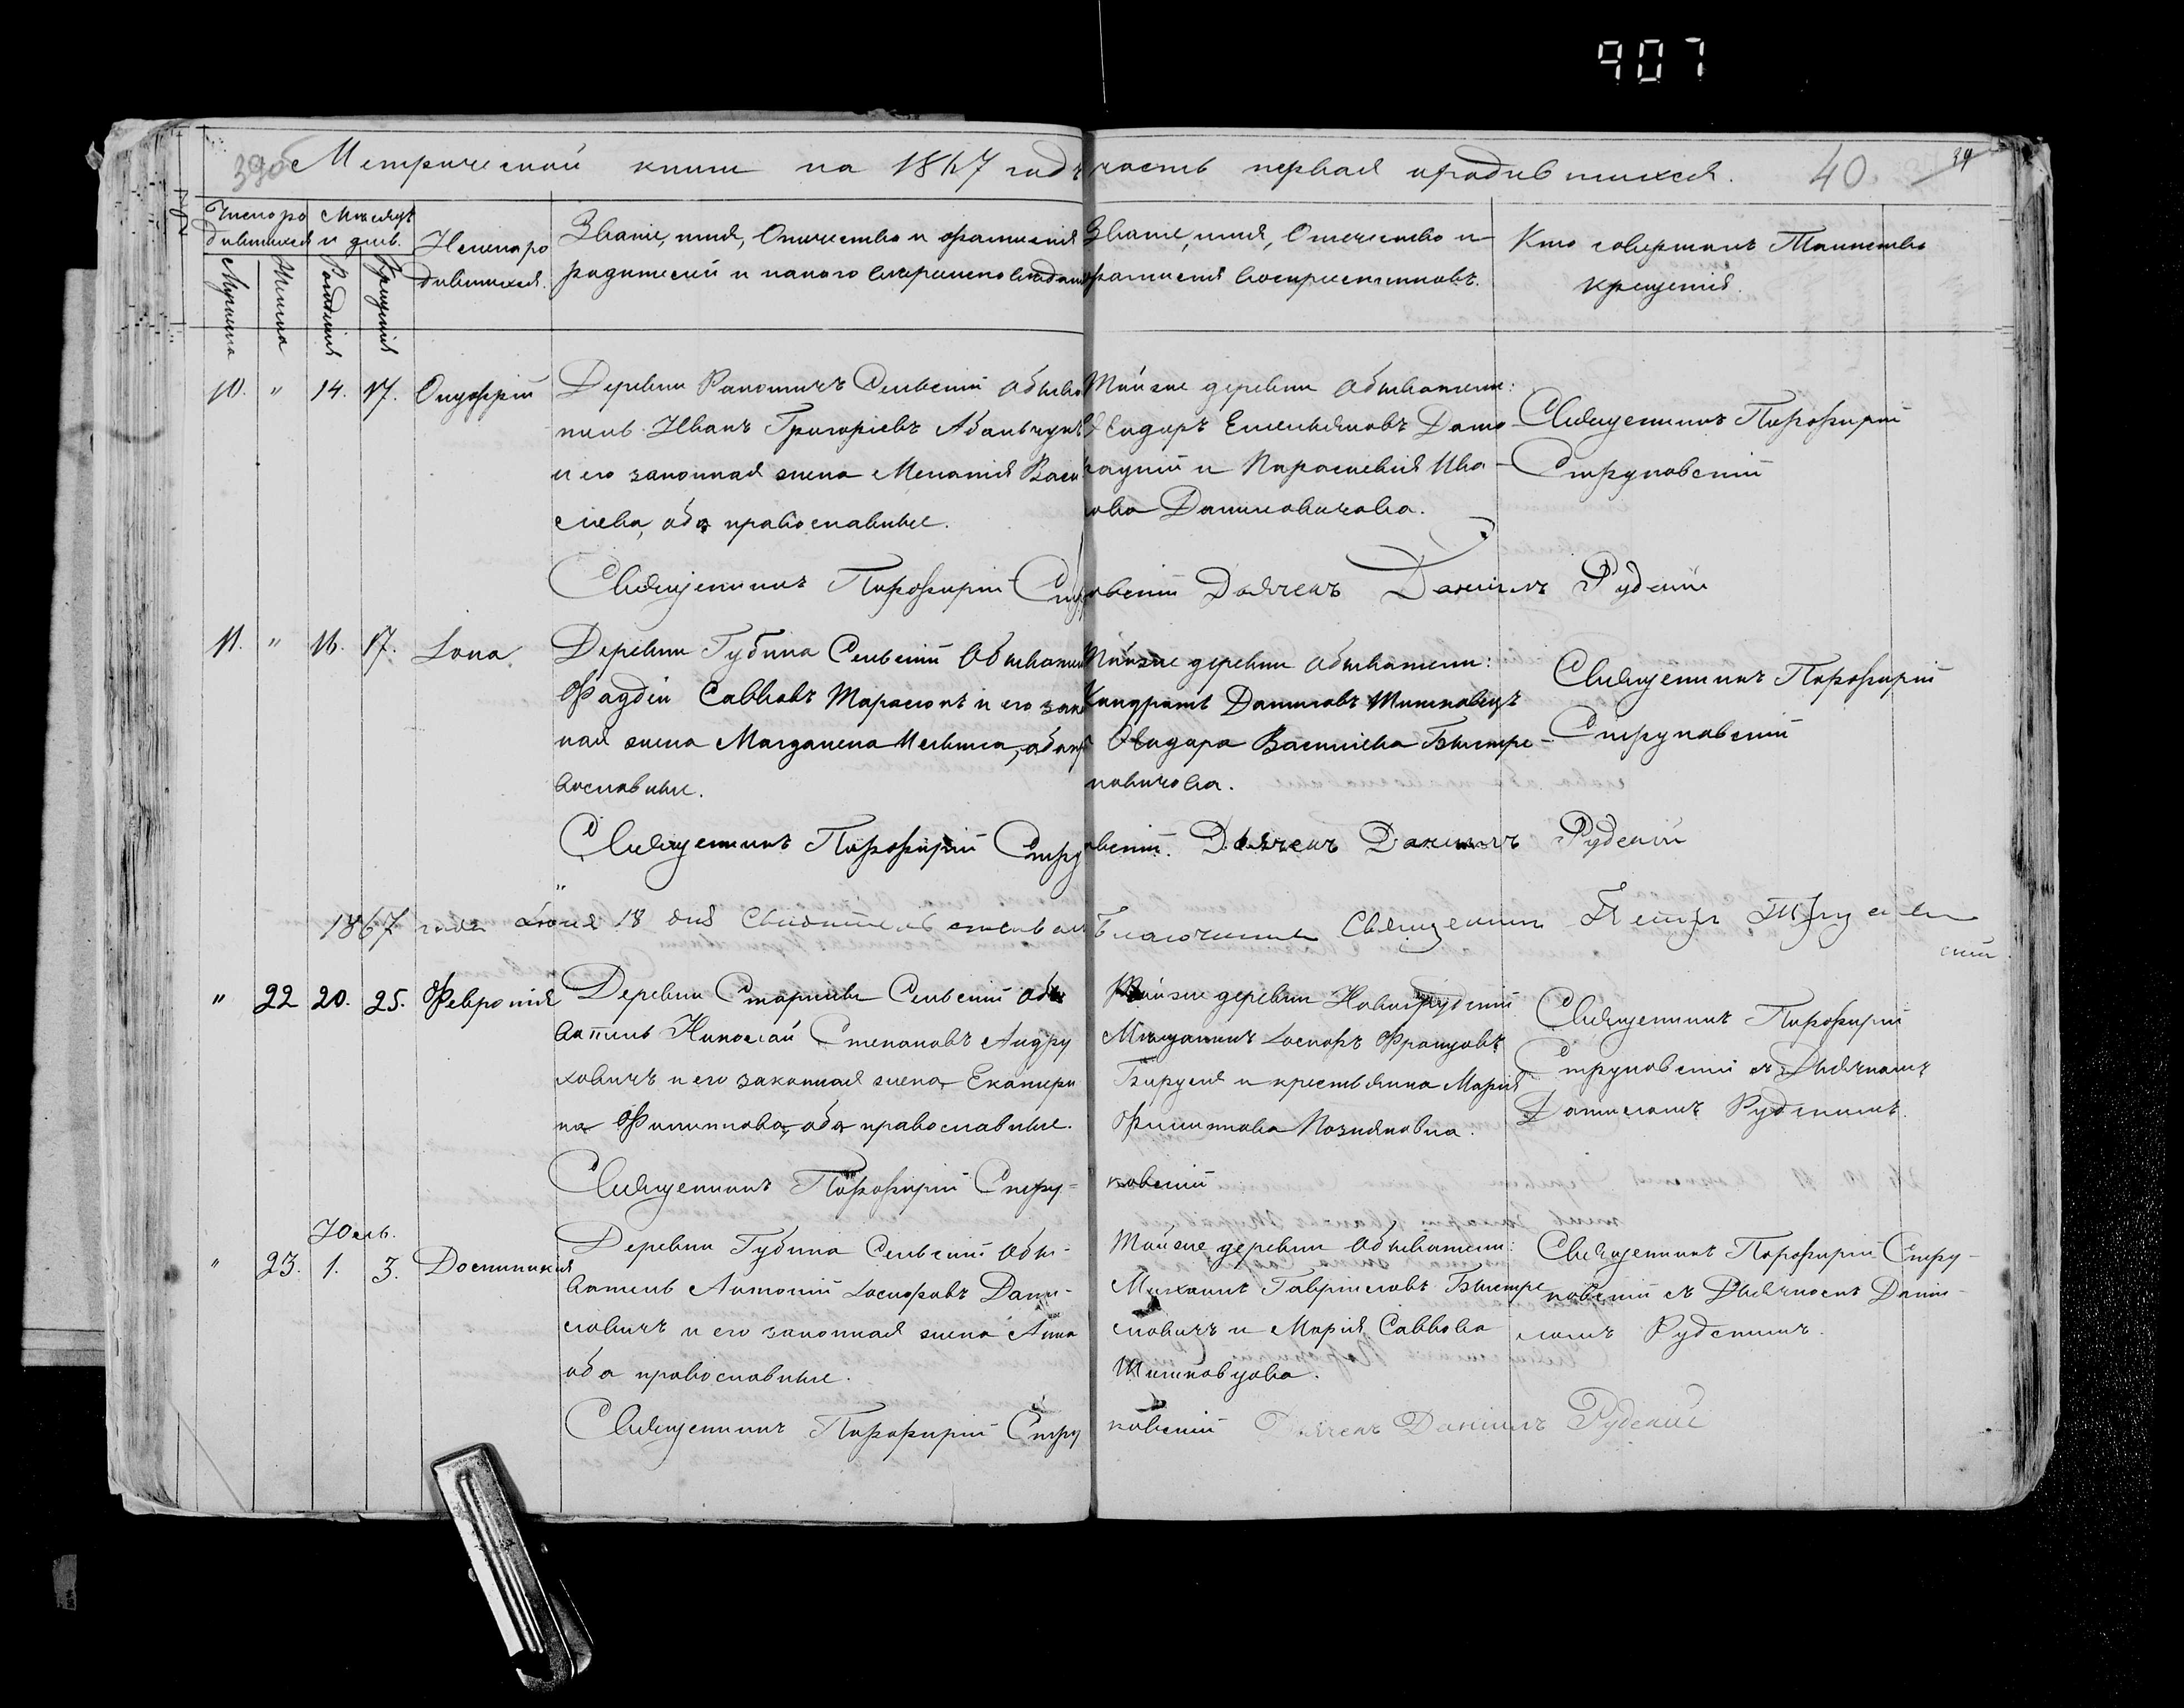 907
390
Метрической книги на 1867 годъ часть первая о родившихся. 40. 39
Число ро
дившихся
Мѣсяцъ
и день.
Мужеска
Женска
Рожденія
Крещенія
Имена ро
дившихся.
Званіе, имя, Отчество и фамилія
родителей и какого вѣроисповѣданія
Званіе, имя, Отечество и
фамилія воспріемниковъ.
Кто совершалъ Таинство
крещенія.
10. " 14. 17. Онуфрій
Деревни Сельскій обыва
тель Иванъ Григоріевъ
и его законная жена Меланія Васи
лева, оба православные.
Тойже деревни обыватели:
Исидоръ Емельяновъ
и Параскевія Ива
нова Даниловичова.
Священникъ Порфирій
Струковскій
Священникъ Порфирій Струковскій Дьячекъ Даніилъ Рудскій
11. " 16. 17. Іона
Деревни Губина Сельскій обыватель
Фаддій Саввовъ Тарасюкъ и его закон
ная жена Магдалена оба пра
вославные.
Тойже деревни обыватели:
Кондратъ Даниловъ Тишковецъ
и Ѳеодора Васильева Быстре
ковичова.
Священникъ Порфирій
Струковскій
Священникъ Порфирій Струковскій. Дьячекъ Даніилъ Рудскій
1867 года Іюня 18 дня Свидѣтельствовалъ Благочинный Священникъ Петръ
скій.
" 22 20. 25. Февронія
Деревни Сельскій обы
ватель Николай Степановъ Андру
ховичъ и его законная жена Екатери
на Филиппова, оба православные.
Тойже деревни Новогрудскій
Мѣщанинъ Іосифъ Францовъ
Бируля и крестьянка Марія
Филиппова
Священникъ Порфирій
Струковскій съ Дьячкомъ
Даниломъ Рудскимъ.
Священникъ Порфирій Стру-
ковскій
Юль.
" 23. 1. 3. Доминикія
Деревни Губина Сельскій обы-
ватель Антоній Іосифовъ Дани-
ловичъ и его законная жена Анна
оба православные.
Тойже деревни обыватели:
Михаилъ Гавріиловъ Быстре
ковичъ и Марія Саввова
Тишковцова.
Священникъ Порфирій Стру-
ковскій съ Дьячкомъ Дани-
ломъ Рудскимъ.
Священникъ Порфирій Стру
ковскій Дьячекъ Даніилъ Рудскій